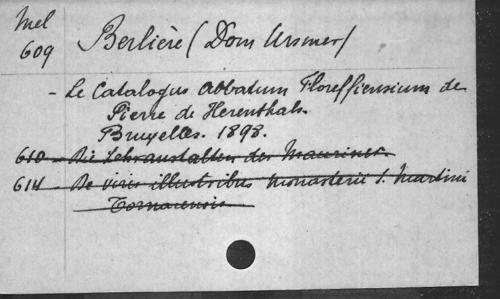 Mel
609
Berlière (Dom Ursmer)
- Le Catalogus Abbatum Floreffiensium de
Pierre de Herenthals.
Bruxelles. 1898.
610 - Die Lehranstalten der Mauriner.
614 - De viris illustribus monasterii S. Martini
Tornacensis